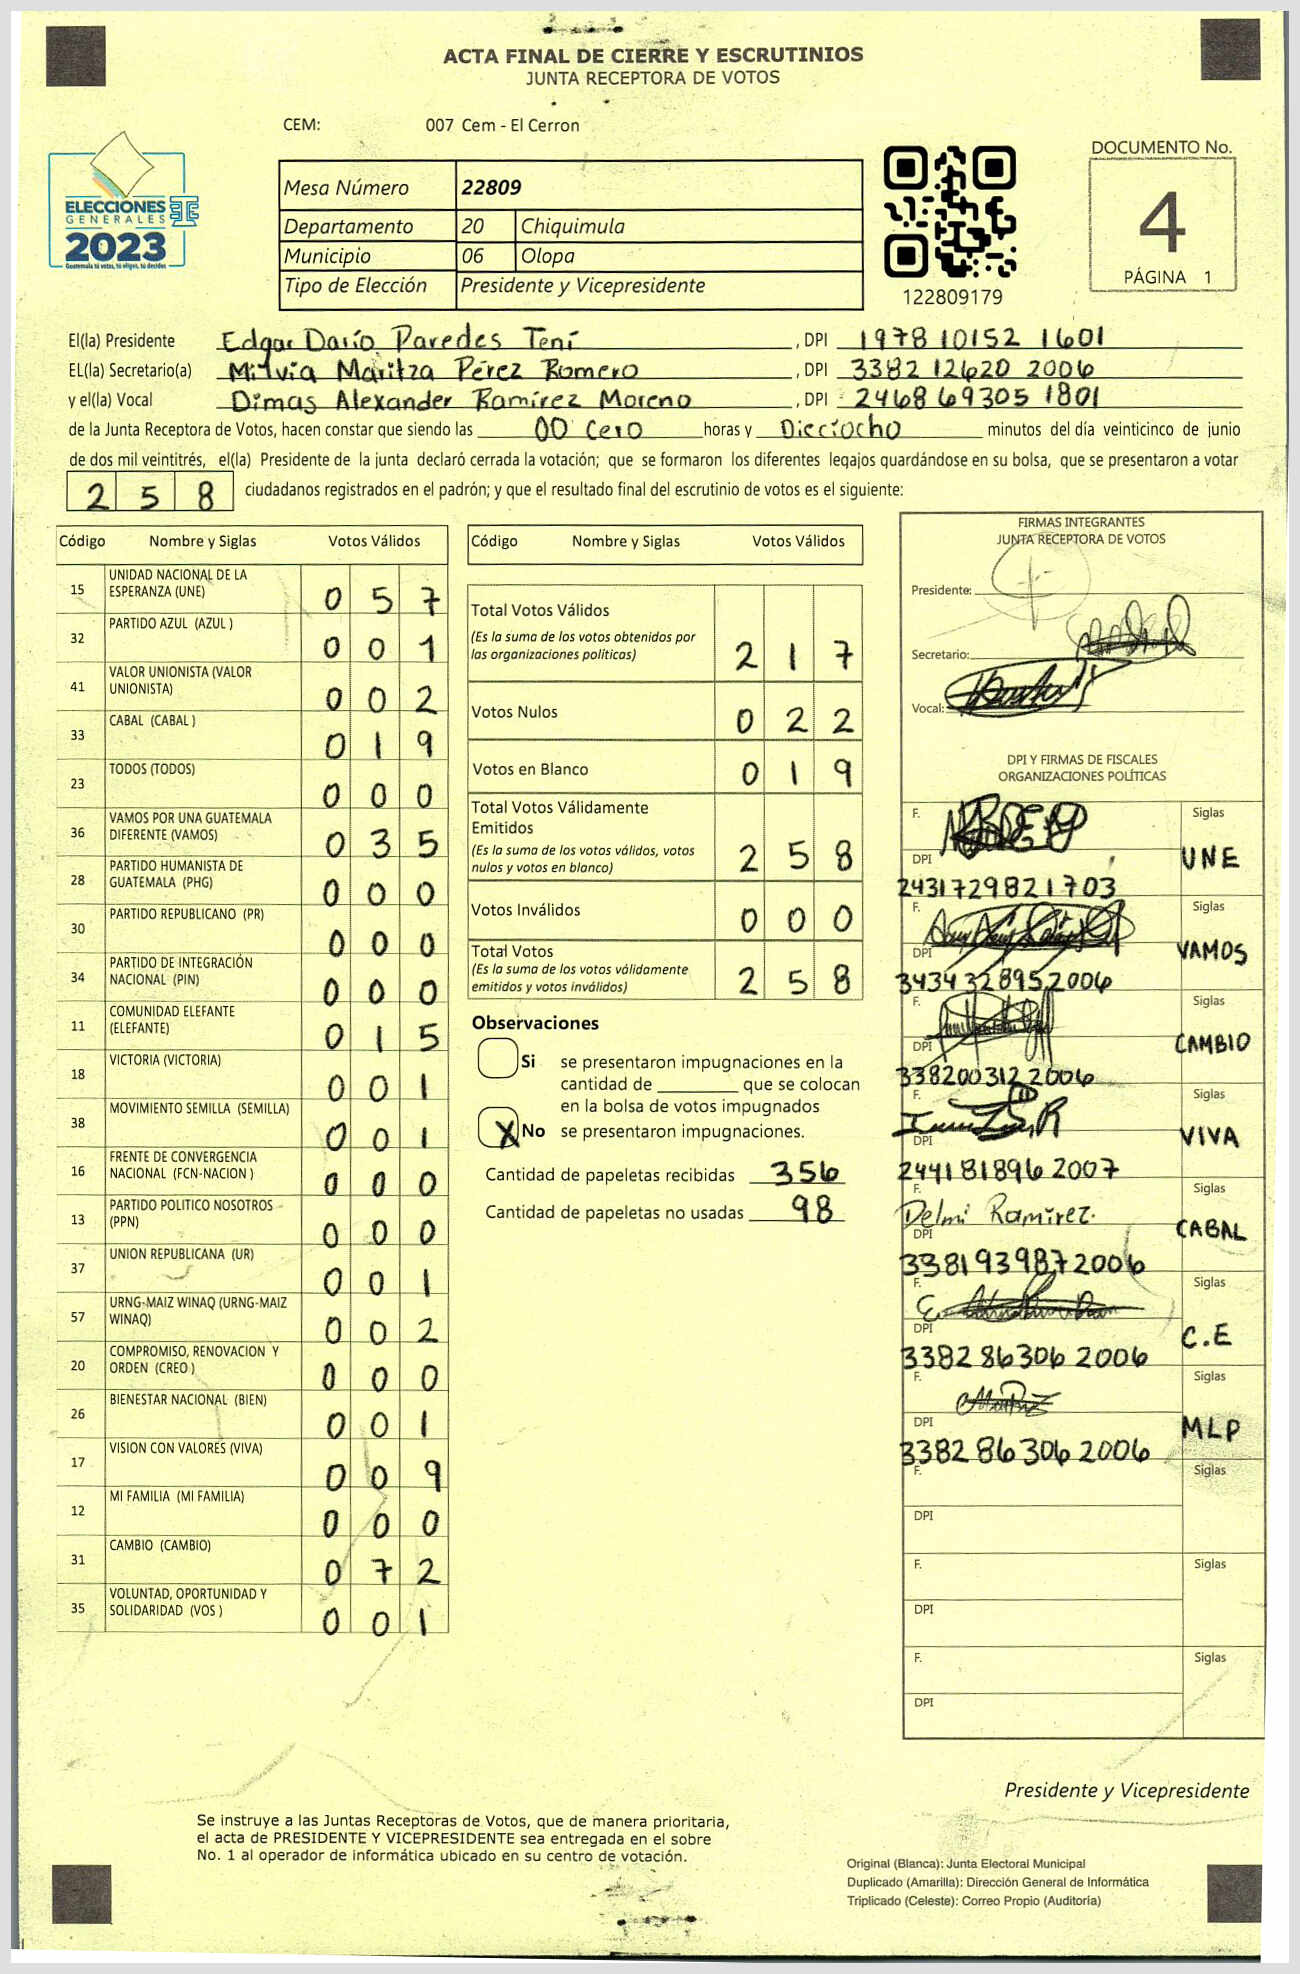 ACTA FINAL DE CIERRE Y ESCRUTINIOS
JUNTA RECEPTORA DE VOTOS
CEM: 007 Cem - El Cerron
ELECCIONES
GENERALES
2023
Guatemala tú votas, tú eliges, tú decides
Mesa Número 22809
Departamento 20 Chiquimula
Municipio 06 Olopa
Tipo de Elección Presidente y Vicepresidente
122809179
DOCUMENTO No.
4
PÁGINA 1
El(la) Presidente Edgar Darío Paredes Tení, DPI 1978 10152 1601
EL(la) Secretario(a) Milvia Maritza Pérez Romero, DPI 3382 12620 2006
y el(la) Vocal Dimas Alexander Ramírez Moreno, DPI 2468 69305 1801
de la Junta Receptora de Votos, hacen constar que siendo las 00 Cero horas y Dieciocho minutos del día veinticinco de junio
de dos mil veintitrés, el(la) Presidente de la junta declaró cerrada la votación; que se formaron los diferentes legajos guardándose en su bolsa, que se presentaron a votar
2 5 8 ciudadanos registrados en el padrón; y que el resultado final del escrutinio de votos es el siguiente:
Código Nombre y Siglas Votos Válidos
15 UNIDAD NACIONAL DE LA ESPERANZA (UNE) 0 5 7
32 PARTIDO AZUL (AZUL ) 0 0 1
41 VALOR UNIONISTA (VALOR UNIONISTA) 0 0 2
33 CABAL (CABAL ) 0 1 9
23 TODOS (TODOS) 0 0 0
36 VAMOS POR UNA GUATEMALA DIFERENTE (VAMOS) 0 3 5
28 PARTIDO HUMANISTA DE GUATEMALA (PHG) 0 0 0
30 PARTIDO REPUBLICANO (PR) 0 0 0
34 PARTIDO DE INTEGRACIÓN NACIONAL (PIN) 0 0 0
11 COMUNIDAD ELEFANTE (ELEFANTE) 0 1 5
18 VICTORIA (VICTORIA) 0 0 1
38 MOVIMIENTO SEMILLA (SEMILLA) 0 0 1
16 FRENTE DE CONVERGENCIA NACIONAL (FCN-NACION ) 0 0 0
13 PARTIDO POLITICO NOSOTROS (PPN) 0 0 0
37 UNION REPUBLICANA (UR) 0 0 1
57 URNG-MAIZ WINAQ (URNG-MAIZ WINAQ) 0 0 2
20 COMPROMISO, RENOVACION Y ORDEN (CREO ) 0 0 0
26 BIENESTAR NACIONAL (BIEN) 0 0 1
17 VISION CON VALORES (VIVA) 0 0 9
12 MI FAMILIA (MI FAMILIA) 0 0 0
31 CAMBIO (CAMBIO) 0 7 2
35 VOLUNTAD, OPORTUNIDAD Y SOLIDARIDAD (VOS ) 0 0 1
Código Nombre y Siglas Votos Válidos
Total Votos Válidos
(Es la suma de los votos obtenidos por
las organizaciones políticas) 2 1 7
Votos Nulos 0 2 2
Votos en Blanco 0 1 9
Total Votos Válidamente
Emitidos
(Es la suma de los votos válidos, votos
nulos y votos en blanco) 2 5 8
Votos Inválidos 0 0 0
Total Votos
(Es la suma de los votos válidamente
emitidos y votos inválidos) 2 5 8
Observaciones
Si se presentaron impugnaciones en la
cantidad de ________ que se colocan
en la bolsa de votos impugnados
X No se presentaron impugnaciones.
Cantidad de papeletas recibidas 356
Cantidad de papeletas no usadas 98
FIRMAS INTEGRANTES
JUNTA RECEPTORA DE VOTOS
Presidente:
Secretario:
Vocal:
DPI Y FIRMAS DE FISCALES
ORGANIZACIONES POLÍTICAS
F. Siglas
DPI UNE
2431729821703
F. Siglas
DPI VAMOS
3434328952006
F. Siglas
DPI CAMBIO
338200312 2006
F. Siglas
DPI VIVA
244181896 2007
F. Delmi Ramírez. Siglas
DPI CABAL
3381939872006
F. Siglas
DPI C.E
3382 86306 2006
F. Siglas
DPI MLP
3382 86306 2006
F. Siglas
DPI
F. Siglas
DPI
F. Siglas
DPI
Presidente y Vicepresidente
Se instruye a las Juntas Receptoras de Votos, que de manera prioritaria,
el acta de PRESIDENTE Y VICEPRESIDENTE sea entregada en el sobre
No. 1 al operador de informática ubicado en su centro de votación.
Original (Blanca): Junta Electoral Municipal
Duplicado (Amarilla): Dirección General de Informática
Triplicado (Celeste): Correo Propio (Auditoría)